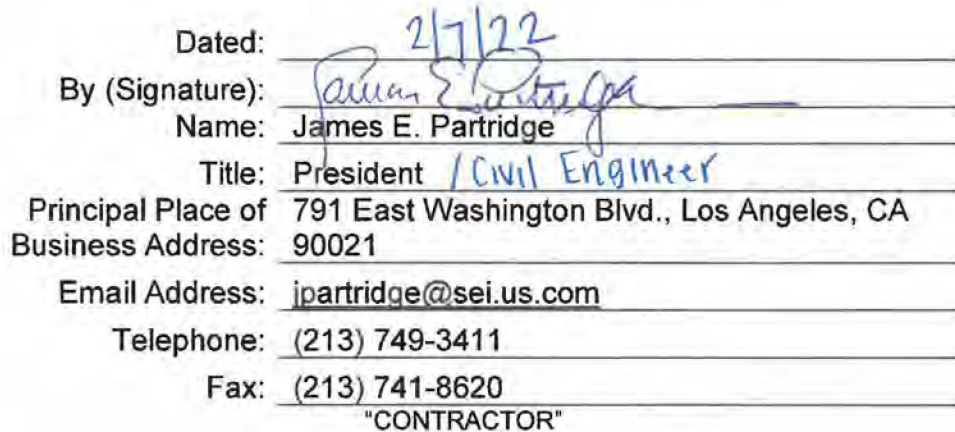 Dated: 2/7/22
By (Signature): James E. Partridge
Name: James E. Partridge
Title: President / Civil Engineer
Principal Place of 791 East Washington Blvd., Los Angeles, CA
Business Address: 90021
Email Address: jpartridge@sei.us.com
Telephone: (213) 749-3411
Fax: (213) 741-8620
"CONTRACTOR"